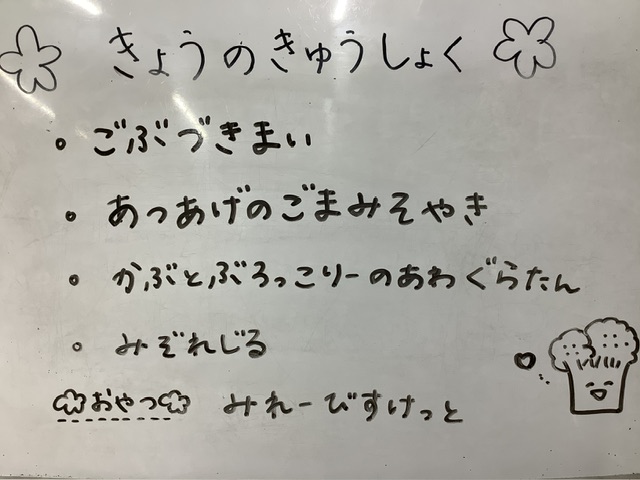 きょうのきゅうしょく
・ごぶづきまい
・あつあげのごまみそやき
・かぶとぶろっこりーのあわぐらたん
・みぞれじる
おやつ みれーびすけっと